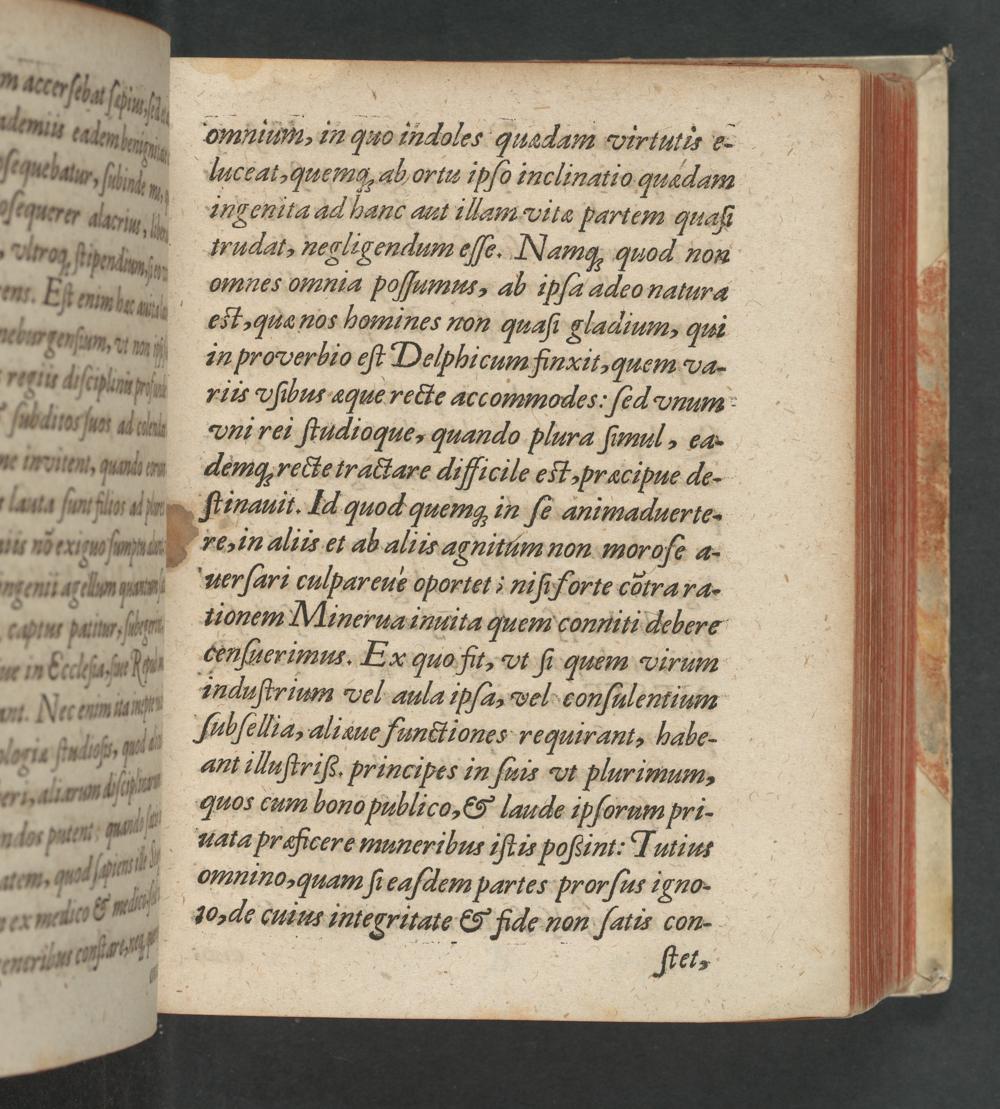 m accersebat sæpius, sed
ademiis eadem benignitat
osequebatur, subinde me,
osequerer alacrius, libera
, vltroq; stipendium, si eo
ens. Est enim hæc auita
neburgensium, vt non ipsi
regiis disciplinis
subditos suos ad colendas
ne invitent, quando eorum
lauta sunt filios ad
niis nõ exiguo sumptu
ngenii agellum quantum
captus patitur, subegerit,
ue in Ecclesia, siue Repub
ant. Nec enim ita inepte
ologiæ studiosis, quod
eri, aliarum disciplinarum
ndos putent: quando
atem, quod sapiens ille
ex medico & medico
eneribus constare, neq;
omnium, in quo indoles quædam virtutis e-
luceat, quemq; ab ortu ipso inclinatio quædam
ingenita ad hanc aut illam vitæ partem quasi
trudat, negligendum esse. Namq; quod non
omnes omnia possumus, ab ipsa adeo natura
est, quæ nos homines non quasi gladium, qui
in proverbio est Delphicum finxit, quem va-
riis vsibus æque recte accommodes: sed vnum
vni rei studioque, quando plura simul, ea-
demq; recte tractare difficile est, præcipue de-
stinauit. Id quod quemq; in se animaduerte-
re, in aliis et ab aliis agnitum non morose a-
uersari culpareué oportet; nisi forte cõtra ra-
tionem Minerua inuita quem conniti debere
censuerimus. Ex quo fit, vt si quem virum
industrium vel aula ipsa, vel consulentium
subsellia, aliæue functiones requirant, habe-
ant illustriß. principes in suis vt plurimum,
quos cum bono publico, & laude ipsorum pri-
uata præficere muneribus istis poßint: Tutius
omnino, quam si easdem partes prorsus igno-
to, de cuius integritate & fide non satis con-
stet,